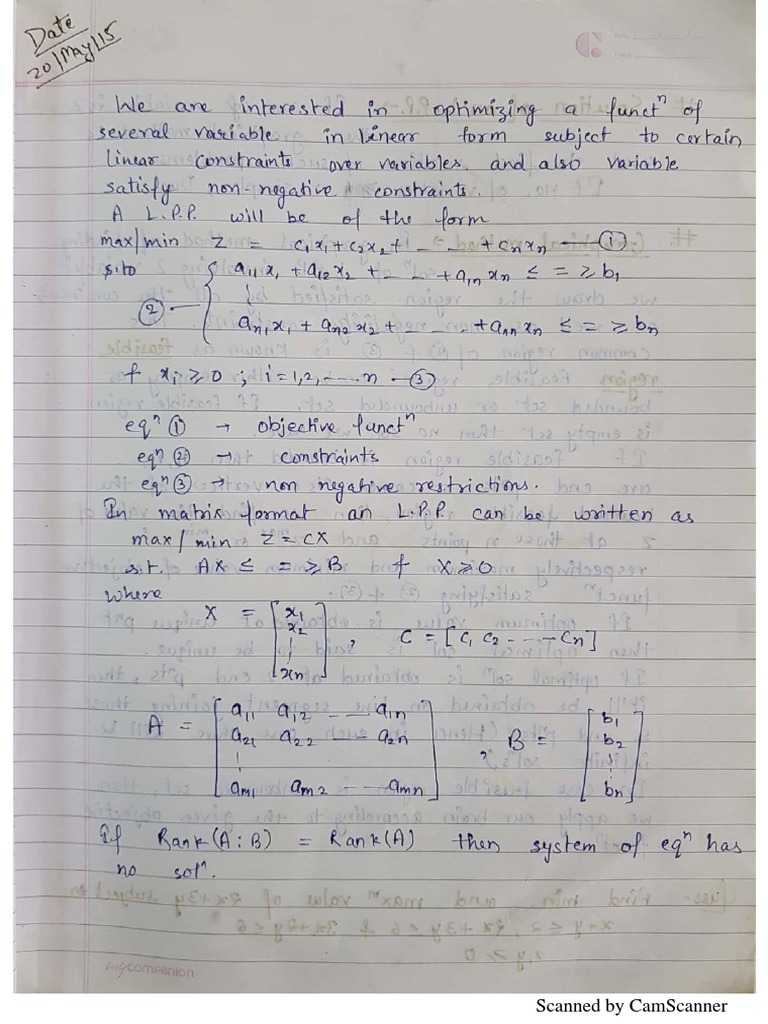 Date
20/May/15
We are interested in optimizing a functⁿ of
several variable in linear form subject to certain
linear constraints over variables and also variable
satisfy non-negative constraints.
A L.P.P. will be of the form
max/min Z = c₁x₁+c₂x₂+ - - +cₙxₙ —①
s.to { a₁₁x₁ + a₁₂x₂ + - - +a₁ₙxₙ ≤ = ≥ b₁
②— ⋮
aₙ₁x₁ + aₙ₂x₂ + - - +aₙₙxₙ ≤ = ≥ bₙ
& xᵢ ≥ 0 ; i = 1,2, - - n —③
eqⁿ ① → objective functⁿ
eqⁿ ② → constraints
eqⁿ ③ → non negative restrictions.
In matrix format an L.P.P. can be written as
max/min Z = CX
s.t. AX ≤ = ≥ B & X ≥ 0
where
X = [x₁ x₂ ⋮ xₙ] , C = [c₁ c₂ - - - cₙ]
A = [a₁₁ a₁₂ - - a₁ₙ
a₂₁ a₂₂ - - a₂ₙ
⋮
aₘ₁ aₘ₂ - - aₘₙ] , B = [b₁ b₂ ⋮ bₙ]
If Rank(A:B) = Rank(A) then system of eqⁿ has
no solⁿ.
mycompanion
Scanned by CamScanner